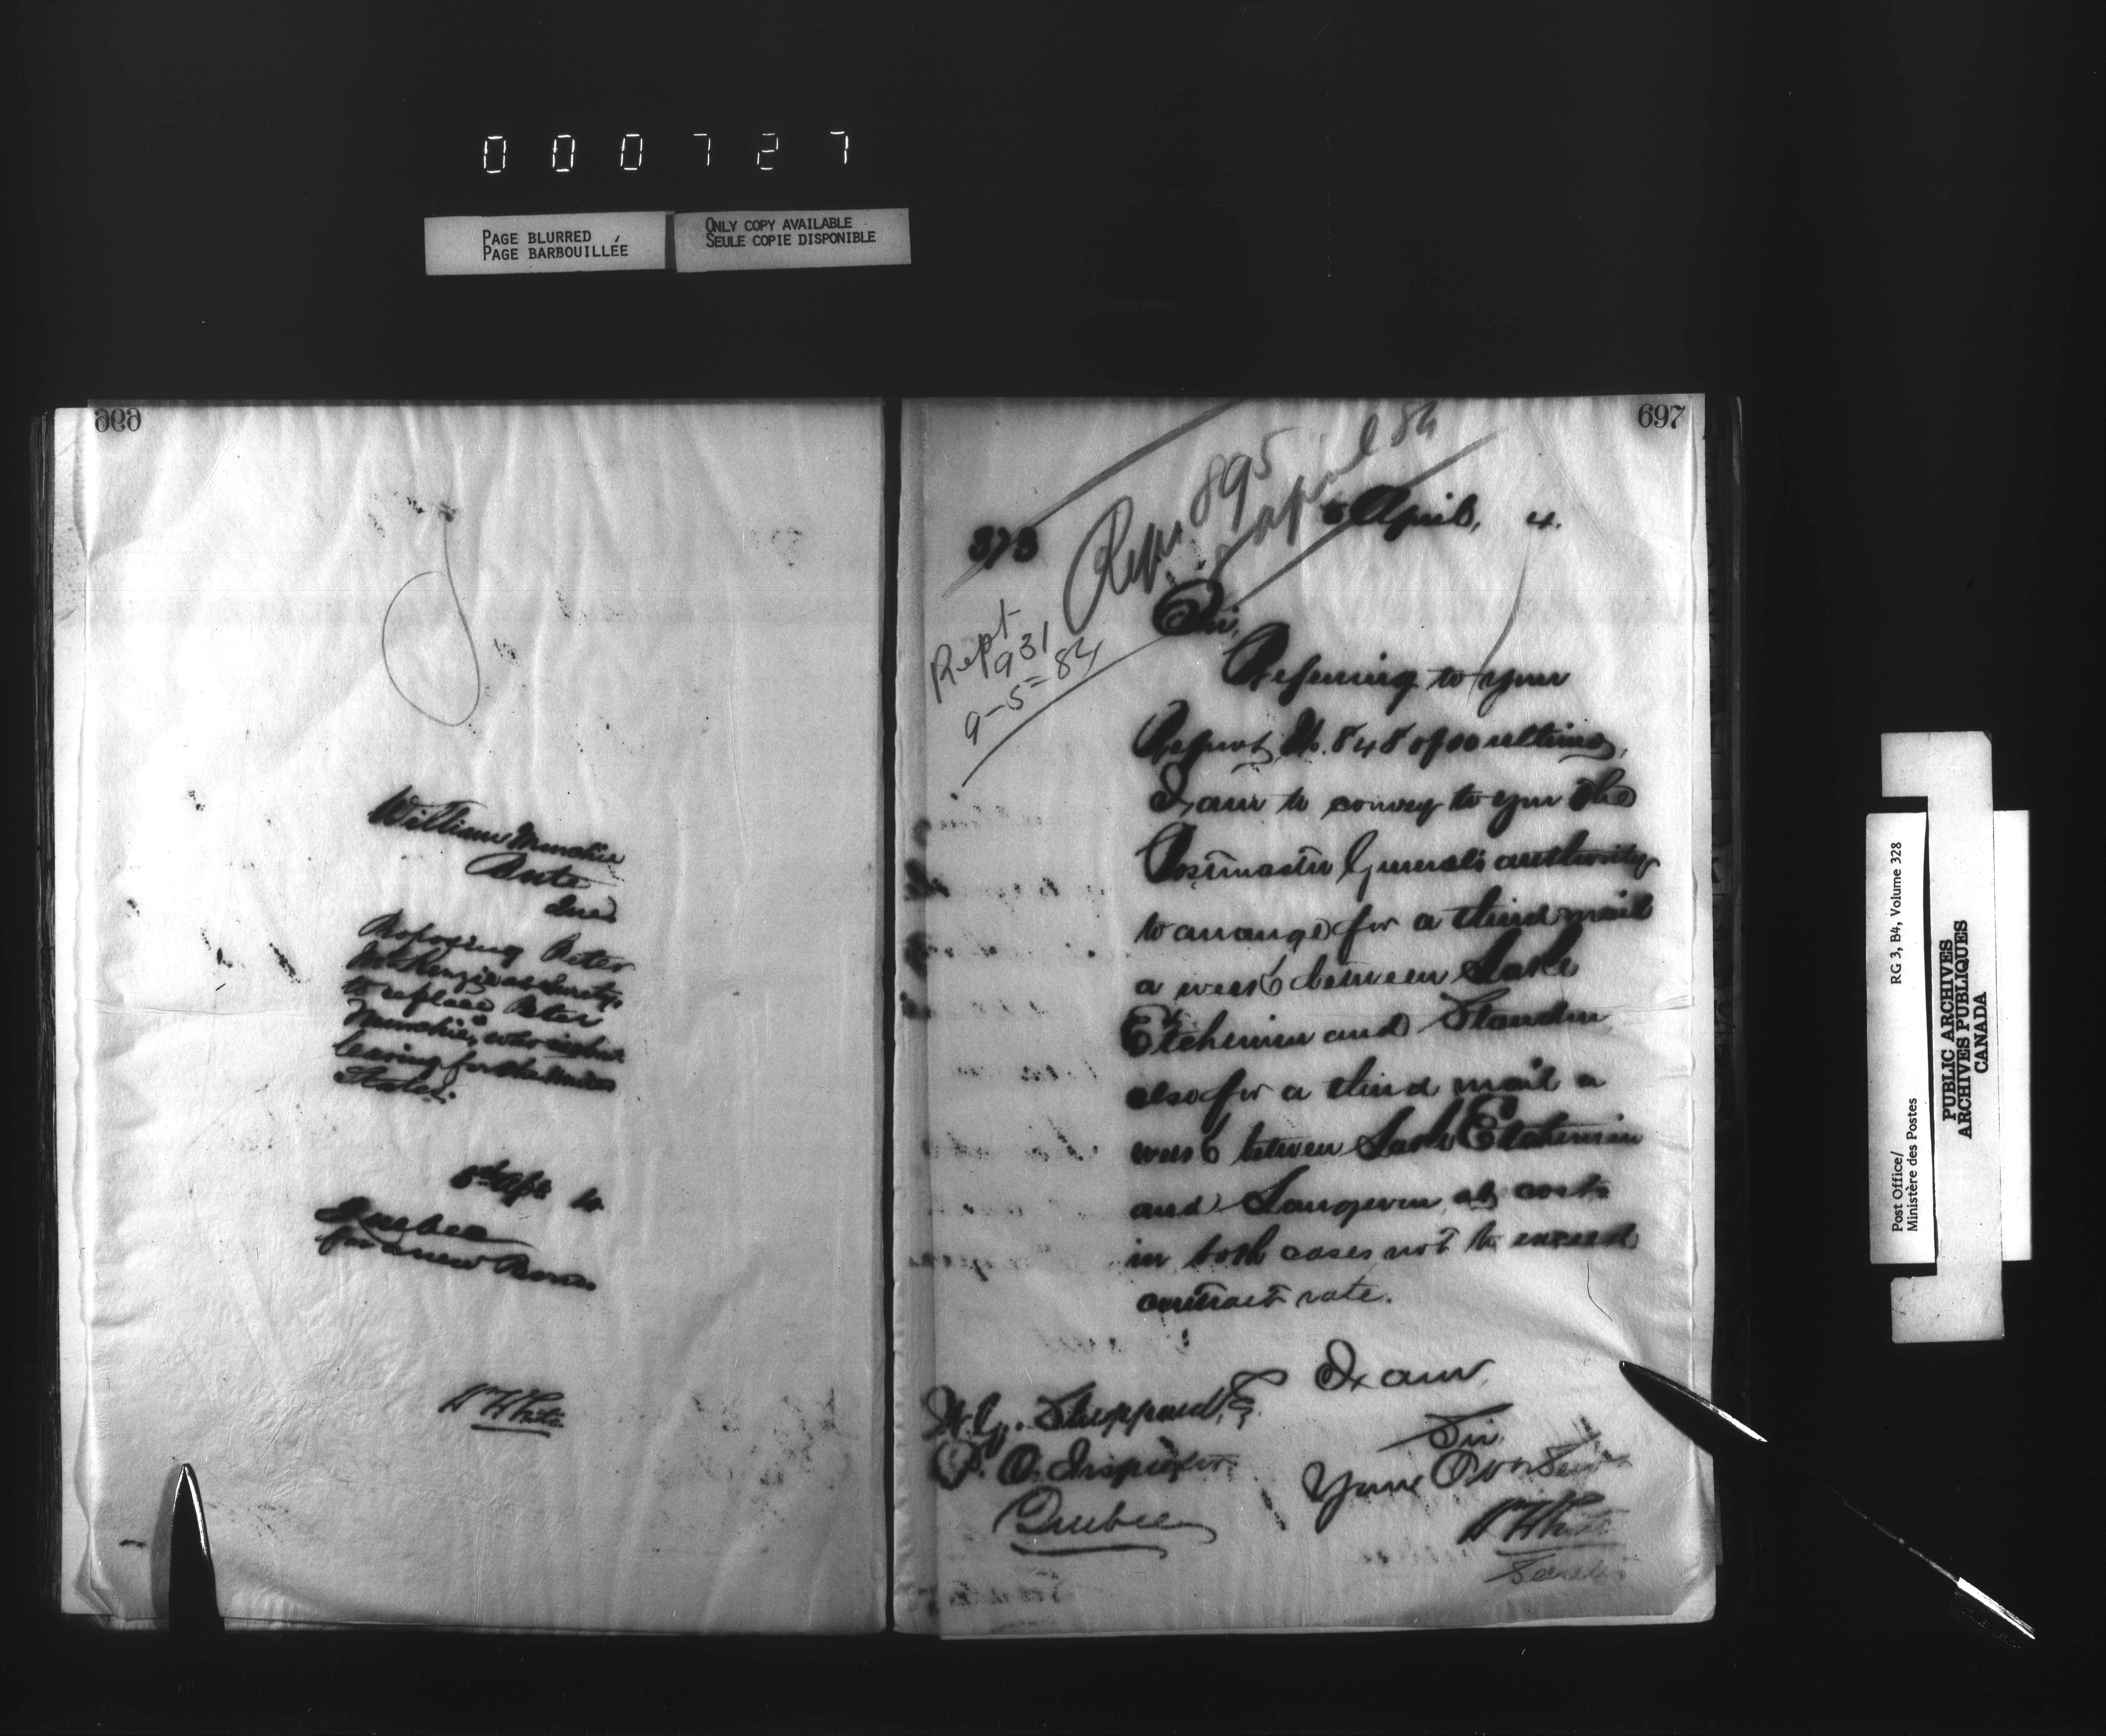 000727
PAGE BLURRED
PAGE BARBOUILLÉE
ONLY COPY AVAILABLE
SEULE COPIE DISPONIBLE
696
William Murchie
Bute
Proposing Peter
McKenzie as Surety
to replace Peter
Murchie, who is
leaving for the United
States.
Apl 4
Quebec
for a new Bond
W White
697
Rept. 895
April 84
373
April, 4.
Rept
931
9-5-84
Sir,
Referring to your
Report No. 848 of ultimo,
I am to convey to you the
Postmaster General's authority
to arrange for a third mail
a week between Lake
Etchemin and Standon
also for a third mail a
week between Lake Etchemin
and Langevin, at cost
in both cases not to exceed
contract rate.
I am,
Sir,
W. G. Sheppard, E
P. O. Inspector
Quebec
Your Obt Servt
W White
Secretary
Post Office/
Ministère des Postes
RG 3, B4, Volume 328
PUBLIC ARCHIVES
ARCHIVES PUBLIQUES
CANADA